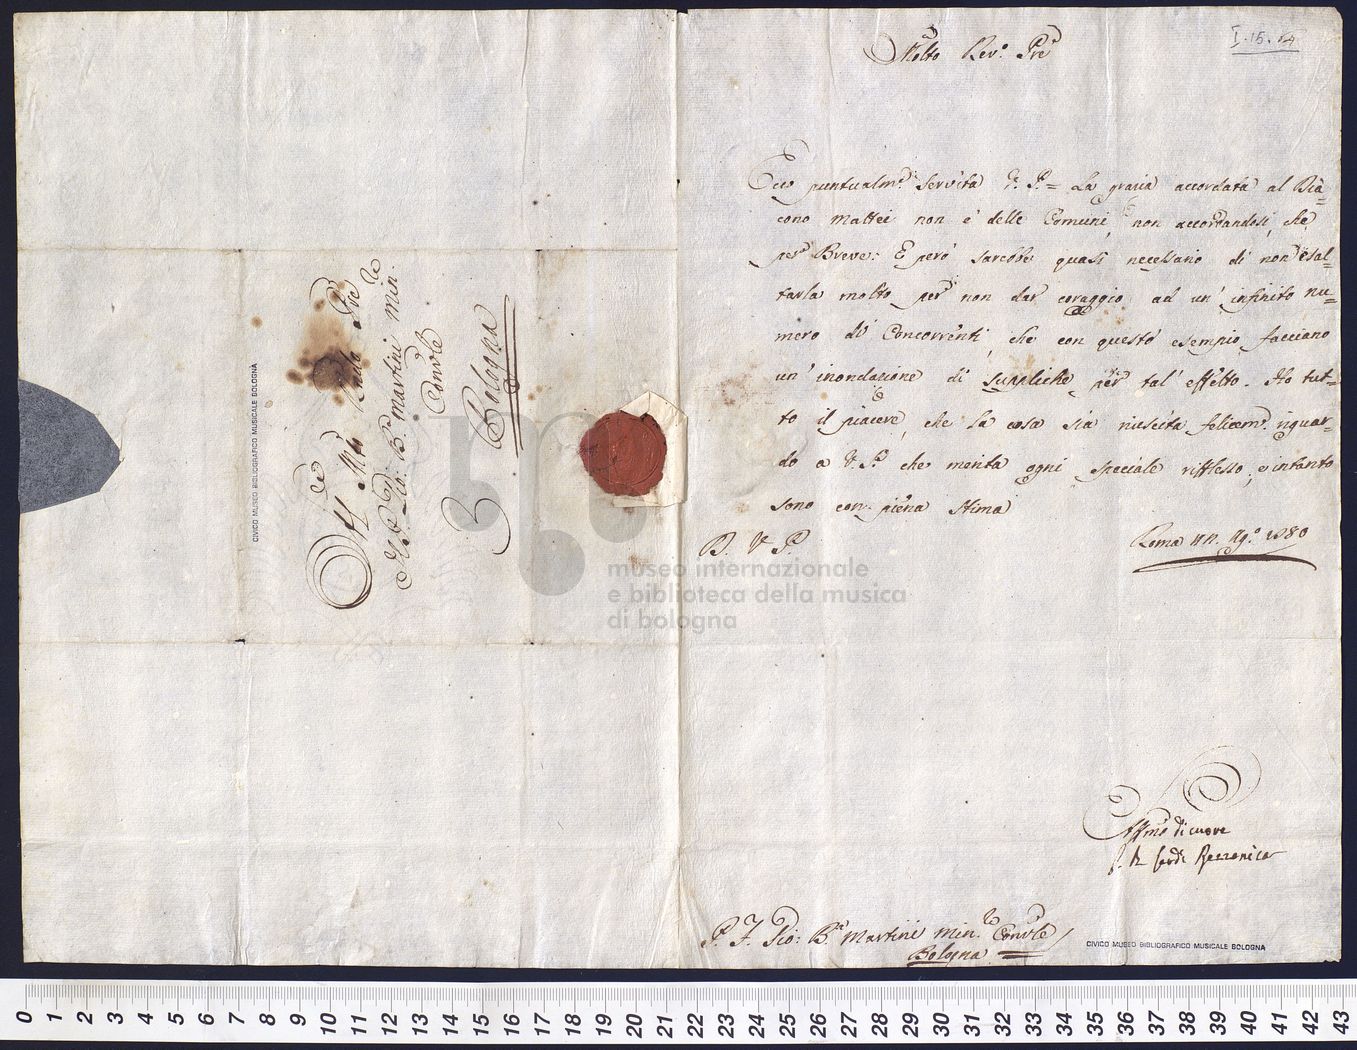 Al Mto Rndo Pre
Il P. Gio: Bta Martini Min.
Convle
Bologna
CIVICO MUSEO BIBLIOGRAFICO MUSICALE BOLOGNA
I.15.
Molto Rev.o Pre
Ecco puntualm.e servita V. P. = La grazia accordata al Dia=
cono Mattei non è delle Comuni, non accordandosi, che
per Breve: E però sarebbe quasi necessario di non esal=
tarla molto per non dar coraggio ad un' infinito nu=
mero di Concorrenti, che con questo esempio facciano
un' inondazione di suppliche per tal' effetto. Ho tut=
to il piacere, che la cosa sia riescita felicem.e riguar=
do a V. P. che merita ogni speciale riflesso, e intanto
sono con piena stima
D. V. P.
Roma Ag.o 1780
Affmo di cuore
Rezzonico
P. F. Gio: Bta Martini Min.le Convle
Bologna
CIVICO MUSEO BIBLIOGRAFICO MUSICALE BOLOGNA
museo internazionale
e biblioteca della musica
di bologna
0 1 2 3 4 5 6 7 8 9 10 11 12 13 14 15 16 17 18 19 20 21 22 23 24 25 26 27 28 29 30 31 32 33 34 35 36 37 38 39 40 41 42 43